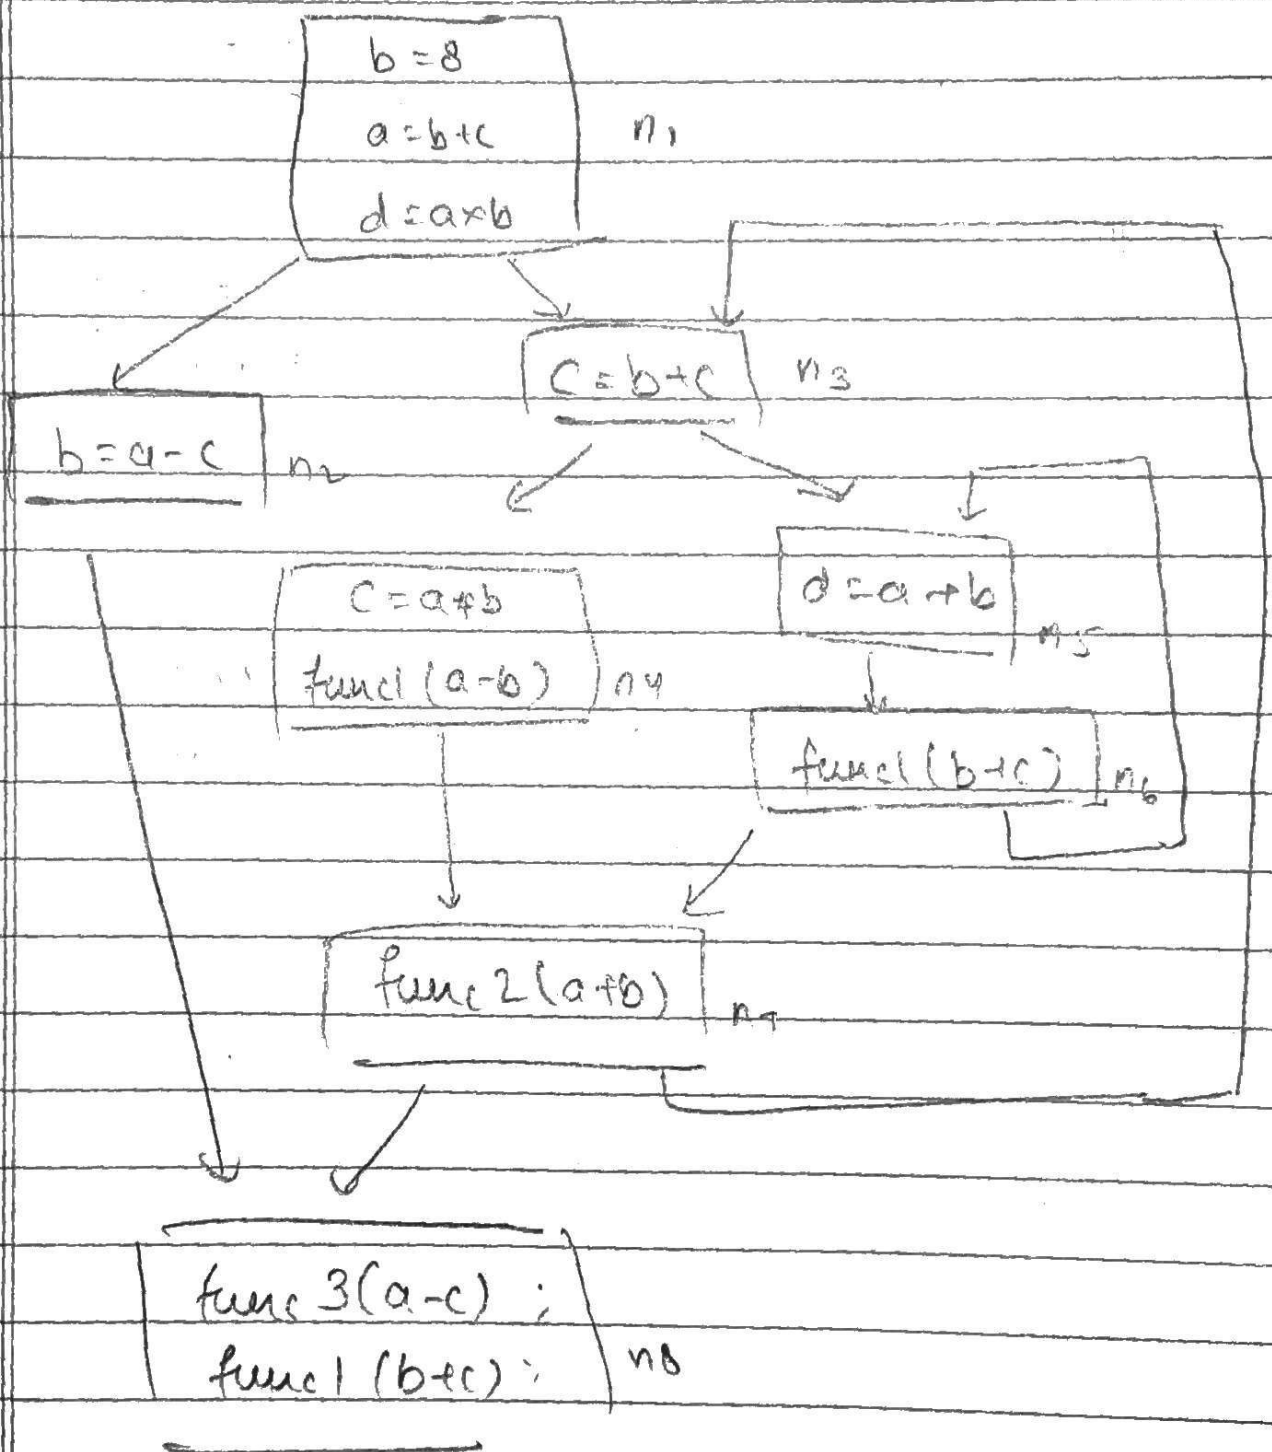 b=8
a=b+c
n1
d=a*b
c=b+c
n3
b=a-c
n2
c=a*b
d=a+b
n5
func1(a-b)
n4
func1(b+c)
n6
func2(a+b)
n7
func3(a-c);
func1(b+c);
n8